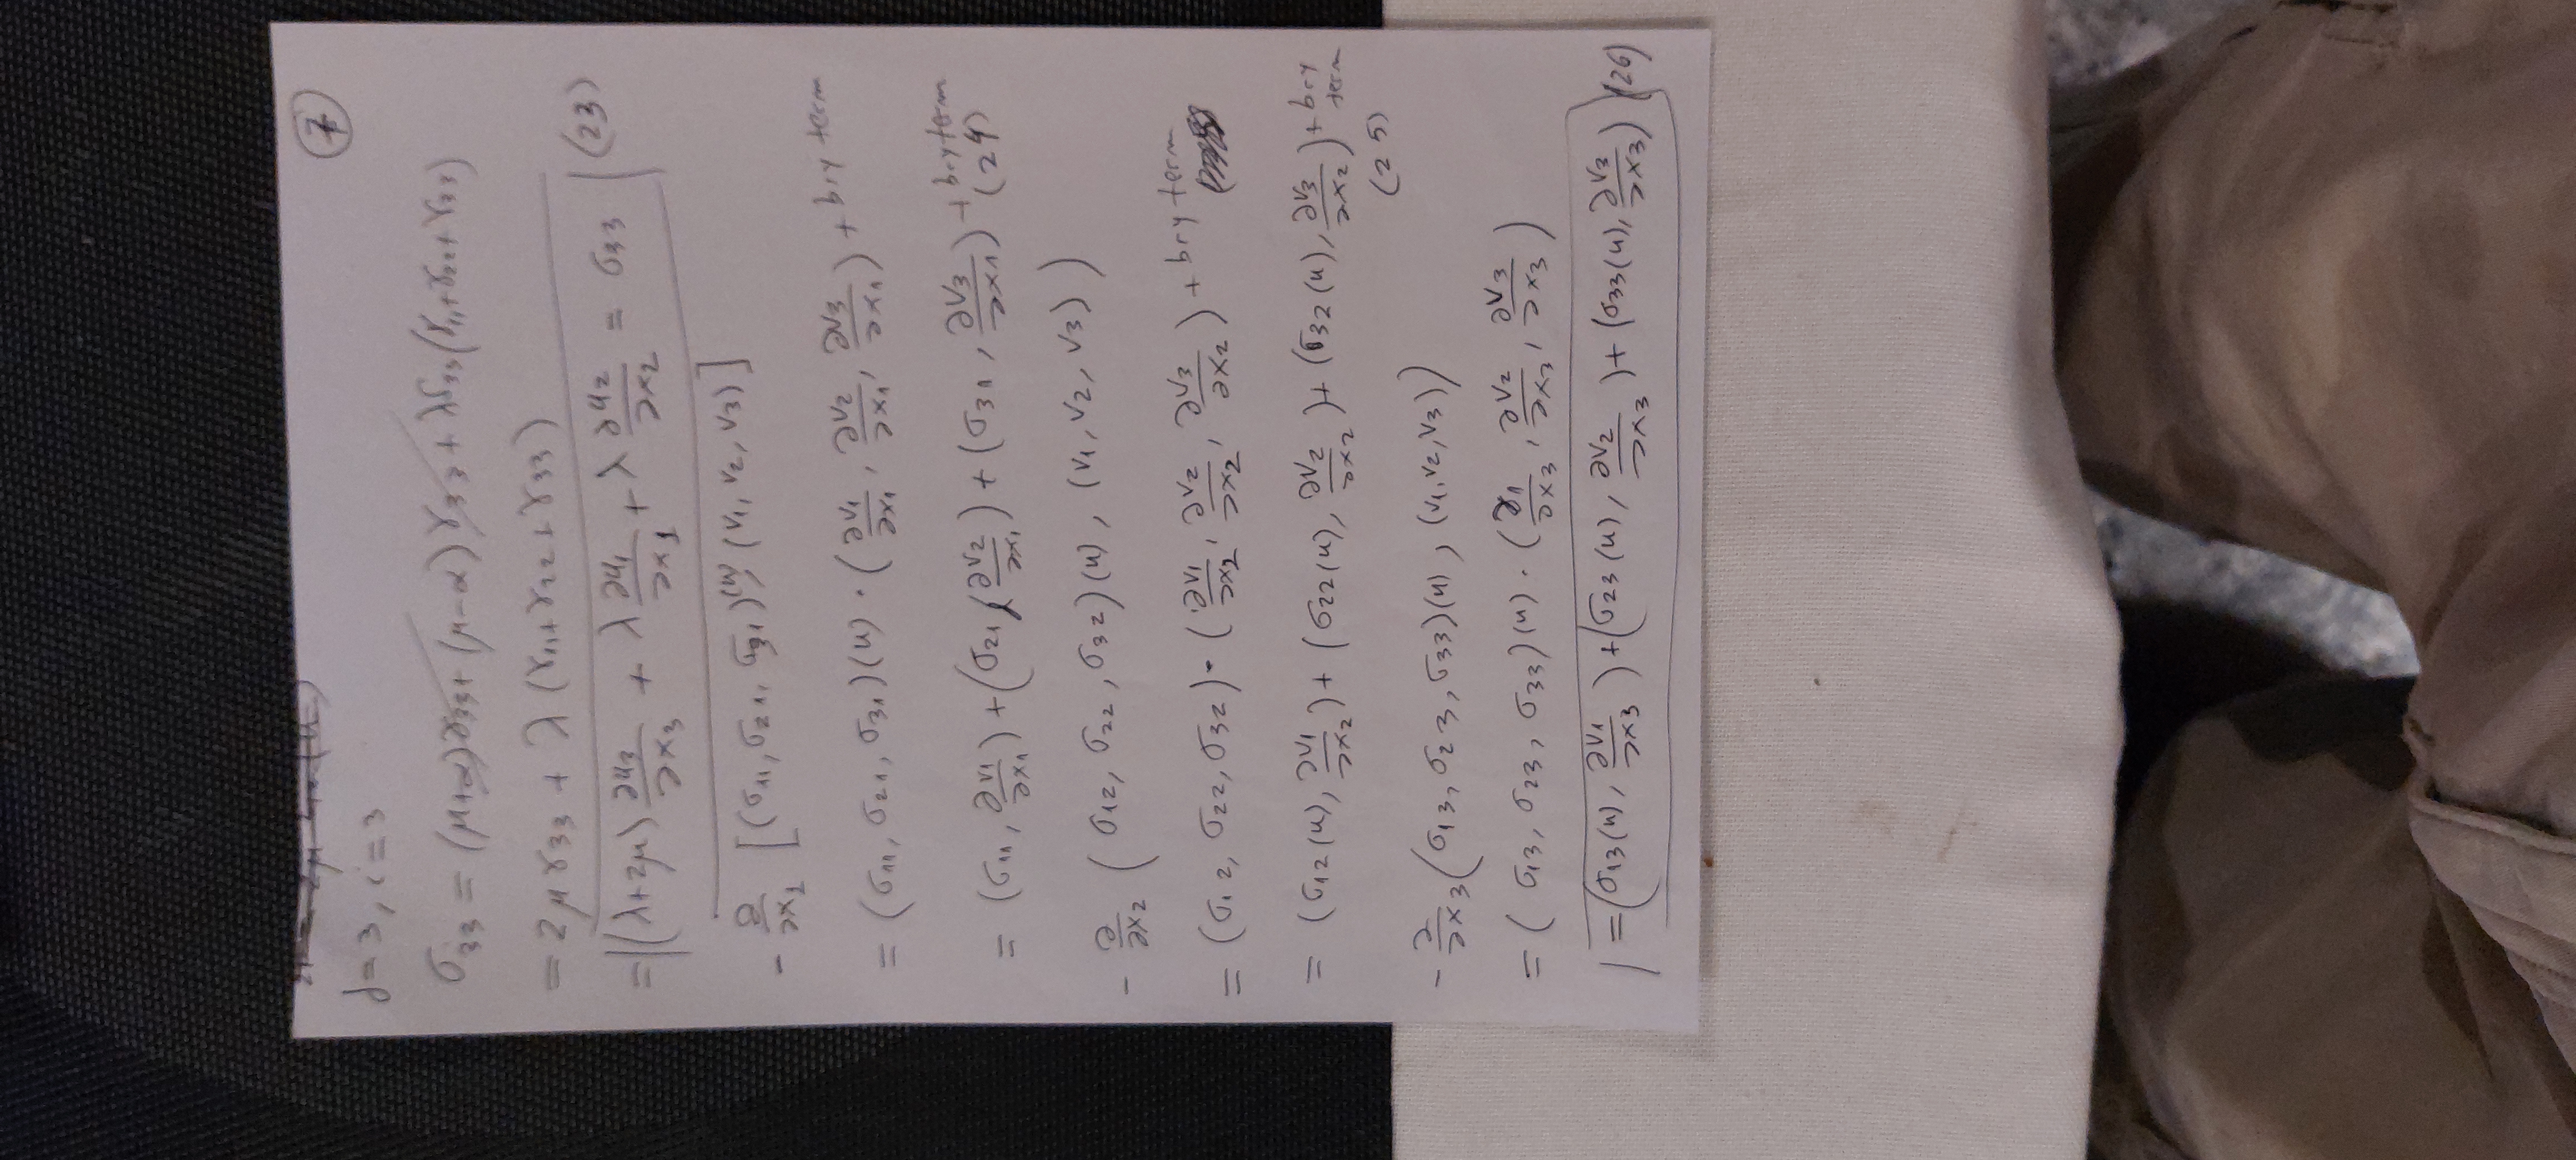 7
j=3, i=3
σ33 = (μ+α)γ33 + (μ-α)γ33 + λδ33(γ11+γ22+γ33)
= 2μγ33 + λ(γ11+γ22+γ33)
= (λ+2μ) ∂u3/∂x3 + λ ∂u1/∂x1 + λ ∂u2/∂x2 = σ33 (23)
- ∂/∂x1 [(σ11, σ21, σ31)(u), (v1, v2, v3)]
= (σ11, σ21, σ31)(u) · (∂v1/∂x1, ∂v2/∂x1, ∂v3/∂x1) + bry term
= (σ11, ∂v1/∂x1) + (σ21, ∂v2/∂x1) + (σ31, ∂v3/∂x1) + bry term (24)
- ∂/∂x2 (σ12, σ22, σ32)(u), (v1, v2, v3))
= (σ12, σ22, σ32) · (∂v1/∂x2, ∂v2/∂x2, ∂v3/∂x2) + bry term
= (σ12(u), ∂v1/∂x2) + (σ22(u), ∂v2/∂x2) + (σ32(u), ∂v3/∂x2) + bry term (25)
- ∂/∂x3 (σ13, σ23, σ33)(u), (v1, v2, v3))
= (σ13, σ23, σ33)(u) · (∂1/∂x3, ∂v2/∂x3, ∂v3/∂x3)
= (σ13(u), ∂v1/∂x3) + (σ23(u), ∂v2/∂x3) + (σ33(u), ∂v3/∂x3) (26)